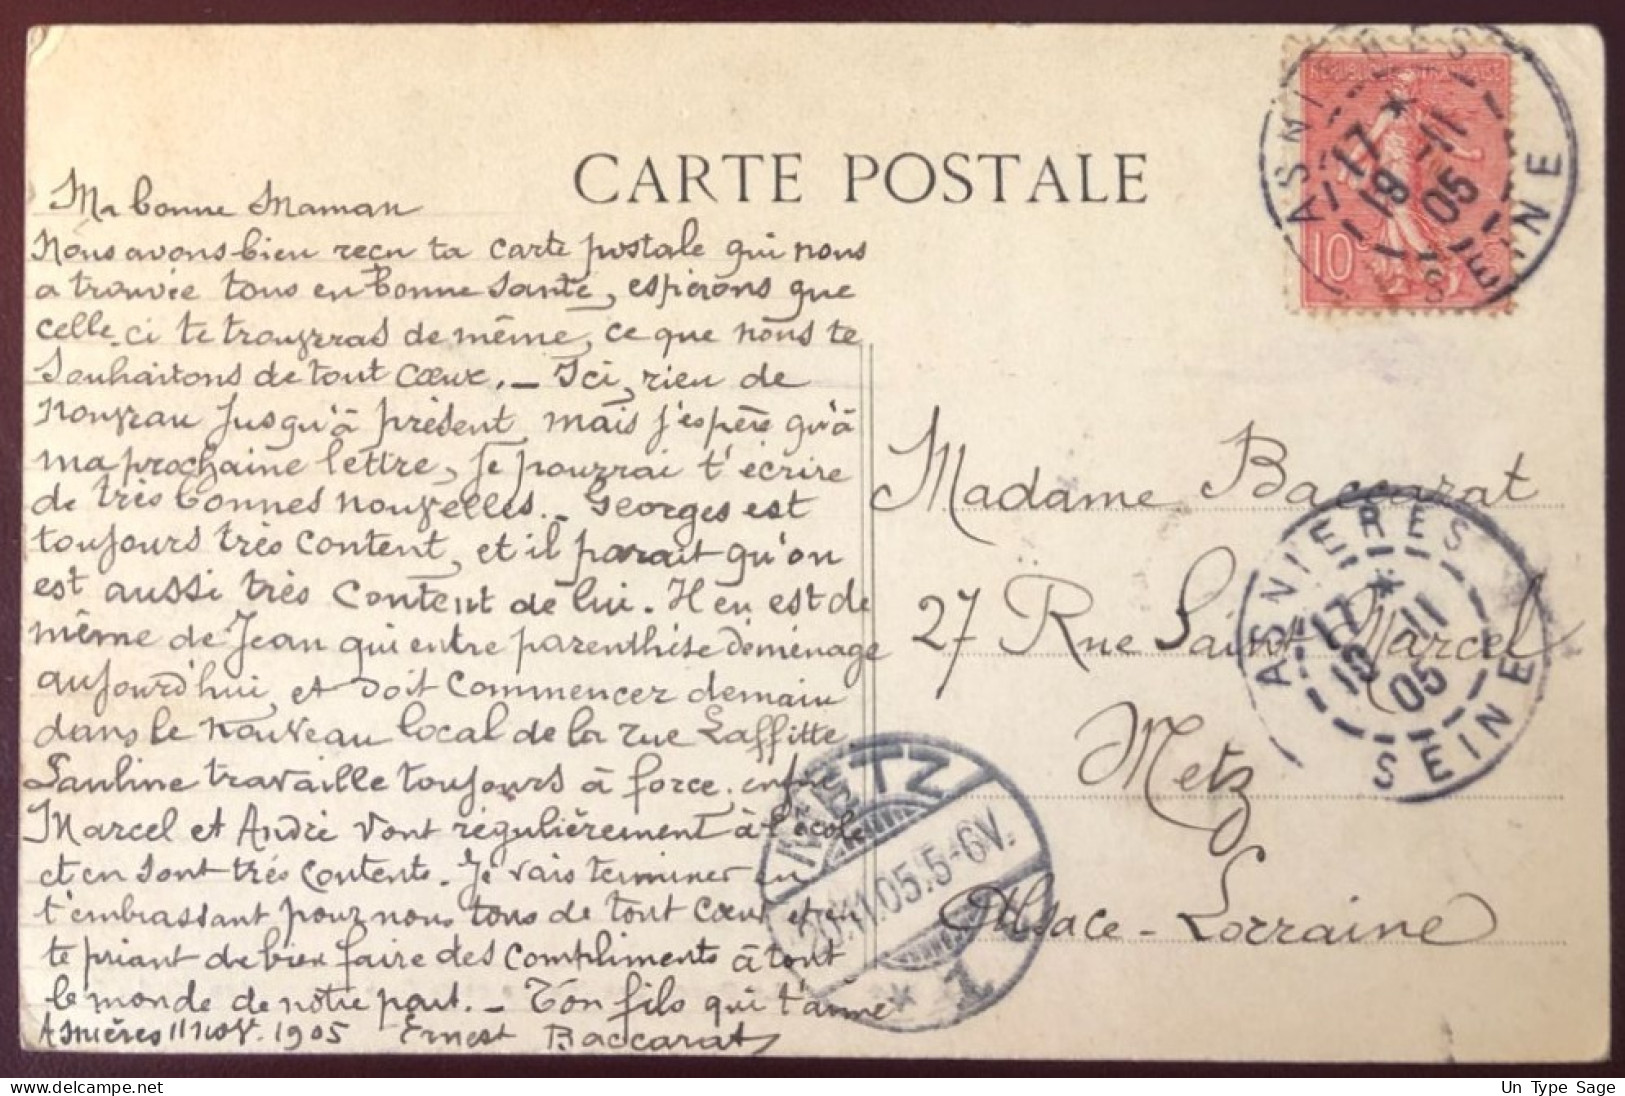 CARTE POSTALE
Ma bonne Maman
Nous avons bien reçu ta carte postale qui nous
a trouvée tous en bonne santé, espérons que
celle-ci te trouvras de même, ce que nous te
Souhaitons de tout Cœur. _ Ici, rien de
nouveau jusqu'à présent, mais j'espère qu'à
ma prochaine lettre, je pourrai t'écrire
de très bonnes nouvelles. _ Georges est
toujours très content, et il parait qu'on
est aussi très content de lui. Il en est de
même de Jean qui entre parenthèse déménage
aujourd'hui, et doit commencer demain
dans le nouveau local de la rue Laffitte
Pauline travaille toujours à force, enfin
Marcel et André vont régulièrement à l'école
et en sont très contents. Je vais terminer en
t'embrassant pour nous tous de tout cœur et en
te priant de bien faire des compliments à tout
le monde de notre part. _ Ton fils qui t'aime
Asnières 11 nov. 1905 Ernest Baccarat
RÉPUBLIQUE FRANÇAISE
10c
ASNIERES
17 * 11
19 05
SEINE
Madame Baccarat
27 Rue Saint Marcel
Metz
Alsace-Lorraine
ASNIERES
17 * 11
19 05
SEINE
METZ
20.11.05.5-6V.
* 1
Un Type Sage